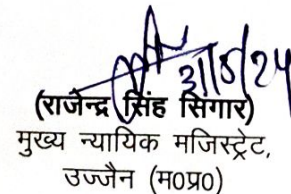 31/5/24
(राजेन्द्र सिंह सिंगार)
मुख्य न्यायिक मजिस्ट्रेट,
उज्जैन (म०प्र०)